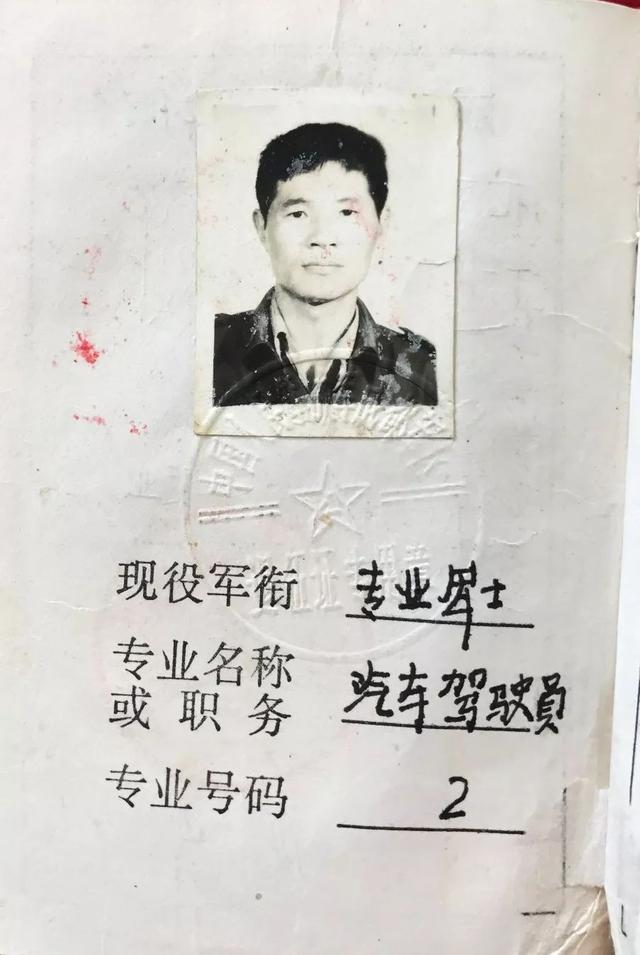 现役军衔 专业军士
专业名称
或职务 汽车驾驶员
专业号码 2